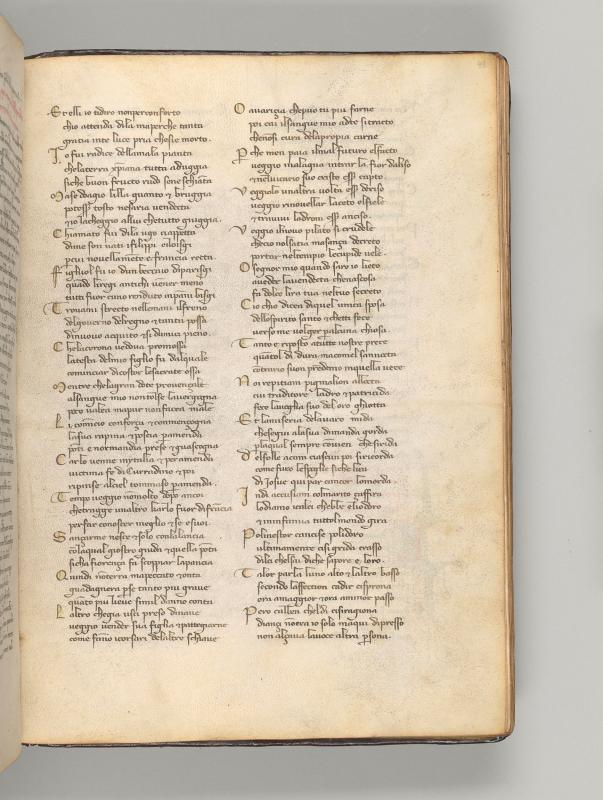 Et elli io tidiro nonperconforto
chio attenda dila maperche tanta
gratia inte luce pria chesie morto.
Io fui radice dellamala pianta
chelaterra xpiana tutta aduggia
siche buon fructo rado sene schianta
Ma se doagio lilla guanto e bruggia
potesser tosto nesaria vendecta
et io lacheggio allui chetutto giuggia.
Chiamato fui dila ugo ciappetta
dime son nati ifilippi eiloisgi
per cui novellamente e francia recta.
Figliuol fu io dun beccaio diparisgi
quado liregi antichi venner meno
tutti fuor cuno renduto inpanni bisgi
Trovami strecto nellemani ilfreno
delgoverno delregno e tanta possa
dinuovo acquisto e si damici pieno
Chelacorona vedova promossa
latesta delmio figlio fu dalquale
cominciar dicostor lesacrate ossa
Mentre chelagran dote provenzale
alsangue mio nontolse lavergogna
poco valea mapur nonfacea male
Li comincio conforza e conmenzogna
lasua rapina e poscia pamenda
ponti e normandia prese e guascogna
Carlo venne inytalia e per amenda
victima fe di Curradino e poi
ripinse alciel tommaso pamenda.
Tempo veggio nonmolto dopo ancoi
chetragge unaltro karlo fuor difrancia
perfar conoscer meglio e se esuoi
Sançarme nesce e solo conlalancia
conlaqual giostro giuda e quella ponta
sicha fiorença fa scoppiar lapancia
Quindi nonterra mapeccato e onta
guadagnera per se tanto piu grave
quanto piu lieve simil danno conta
Laltro chegia usci preso dinave
veggio vender sua figlia e pateggiarne
come fanno icorsari dellaltre schiave
O avariçia chepuoi tu piu farne
poi cai ilsangue mio adte sitracto
chenonsi cura dellapropia carne
Perche men paia ilmal futuro elfacto
veggio inalagna intrar la fior daliso
e nelvicario suo cristo esser capto
Veggiolo unaltra volta esser deriso
veggio rinovellar laceto elfiele
e travivi ladroni esser anciso.
Veggio ilnuovo pilato si crudele
checio nolsatia masança decreto
portar neltempio lecupide vele
O segnor mio quando saro io lieto
aveder lavendecta chenascosa
fa dolce lira tua neltuo secreto
Cio chio dicea diquel unica sposa
dellospirito santo e chetti fece
verso me volger palcuna chiosa
Tanto e riposto atutte nostre prece
quantol di dura macomel sannocta
contrario suon prendemo inquella vece
Noi repetiam pigmalion allocta
cui traditore ladro e patricida
fece lavoglia sua del oro ghiotta
Et lamiseria delavaro mida
chesegui alasua dimanda gorda
plaqual sempre conven chesirida
Delfolle acam ciascun poi siricorda
come furo lespoglie siche lira
di Iosue qui par cancor lomorda
Indi accusiam colmarito saffira
lodiamo icalci chebbe eliodoro
e ninfamia tuttolmondo gira
Polinestor cancise polidoro
ultimamente cisi grida crasso
dilci cheltusai diche sapore e loro.
Talor parla luno alto e laltro basso
secondo laffection cadir cisprona
ora amaggior e ora aminor passo
Pero alben cheldi cisragiona
diançi nonera io solo maqui dapresso
non alçava lavoce altra persona.